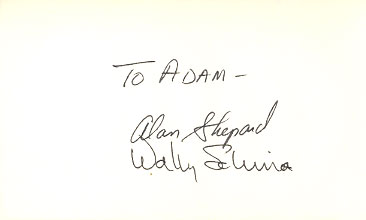 To ADAM -
Alan Shepard
Wally Schirra